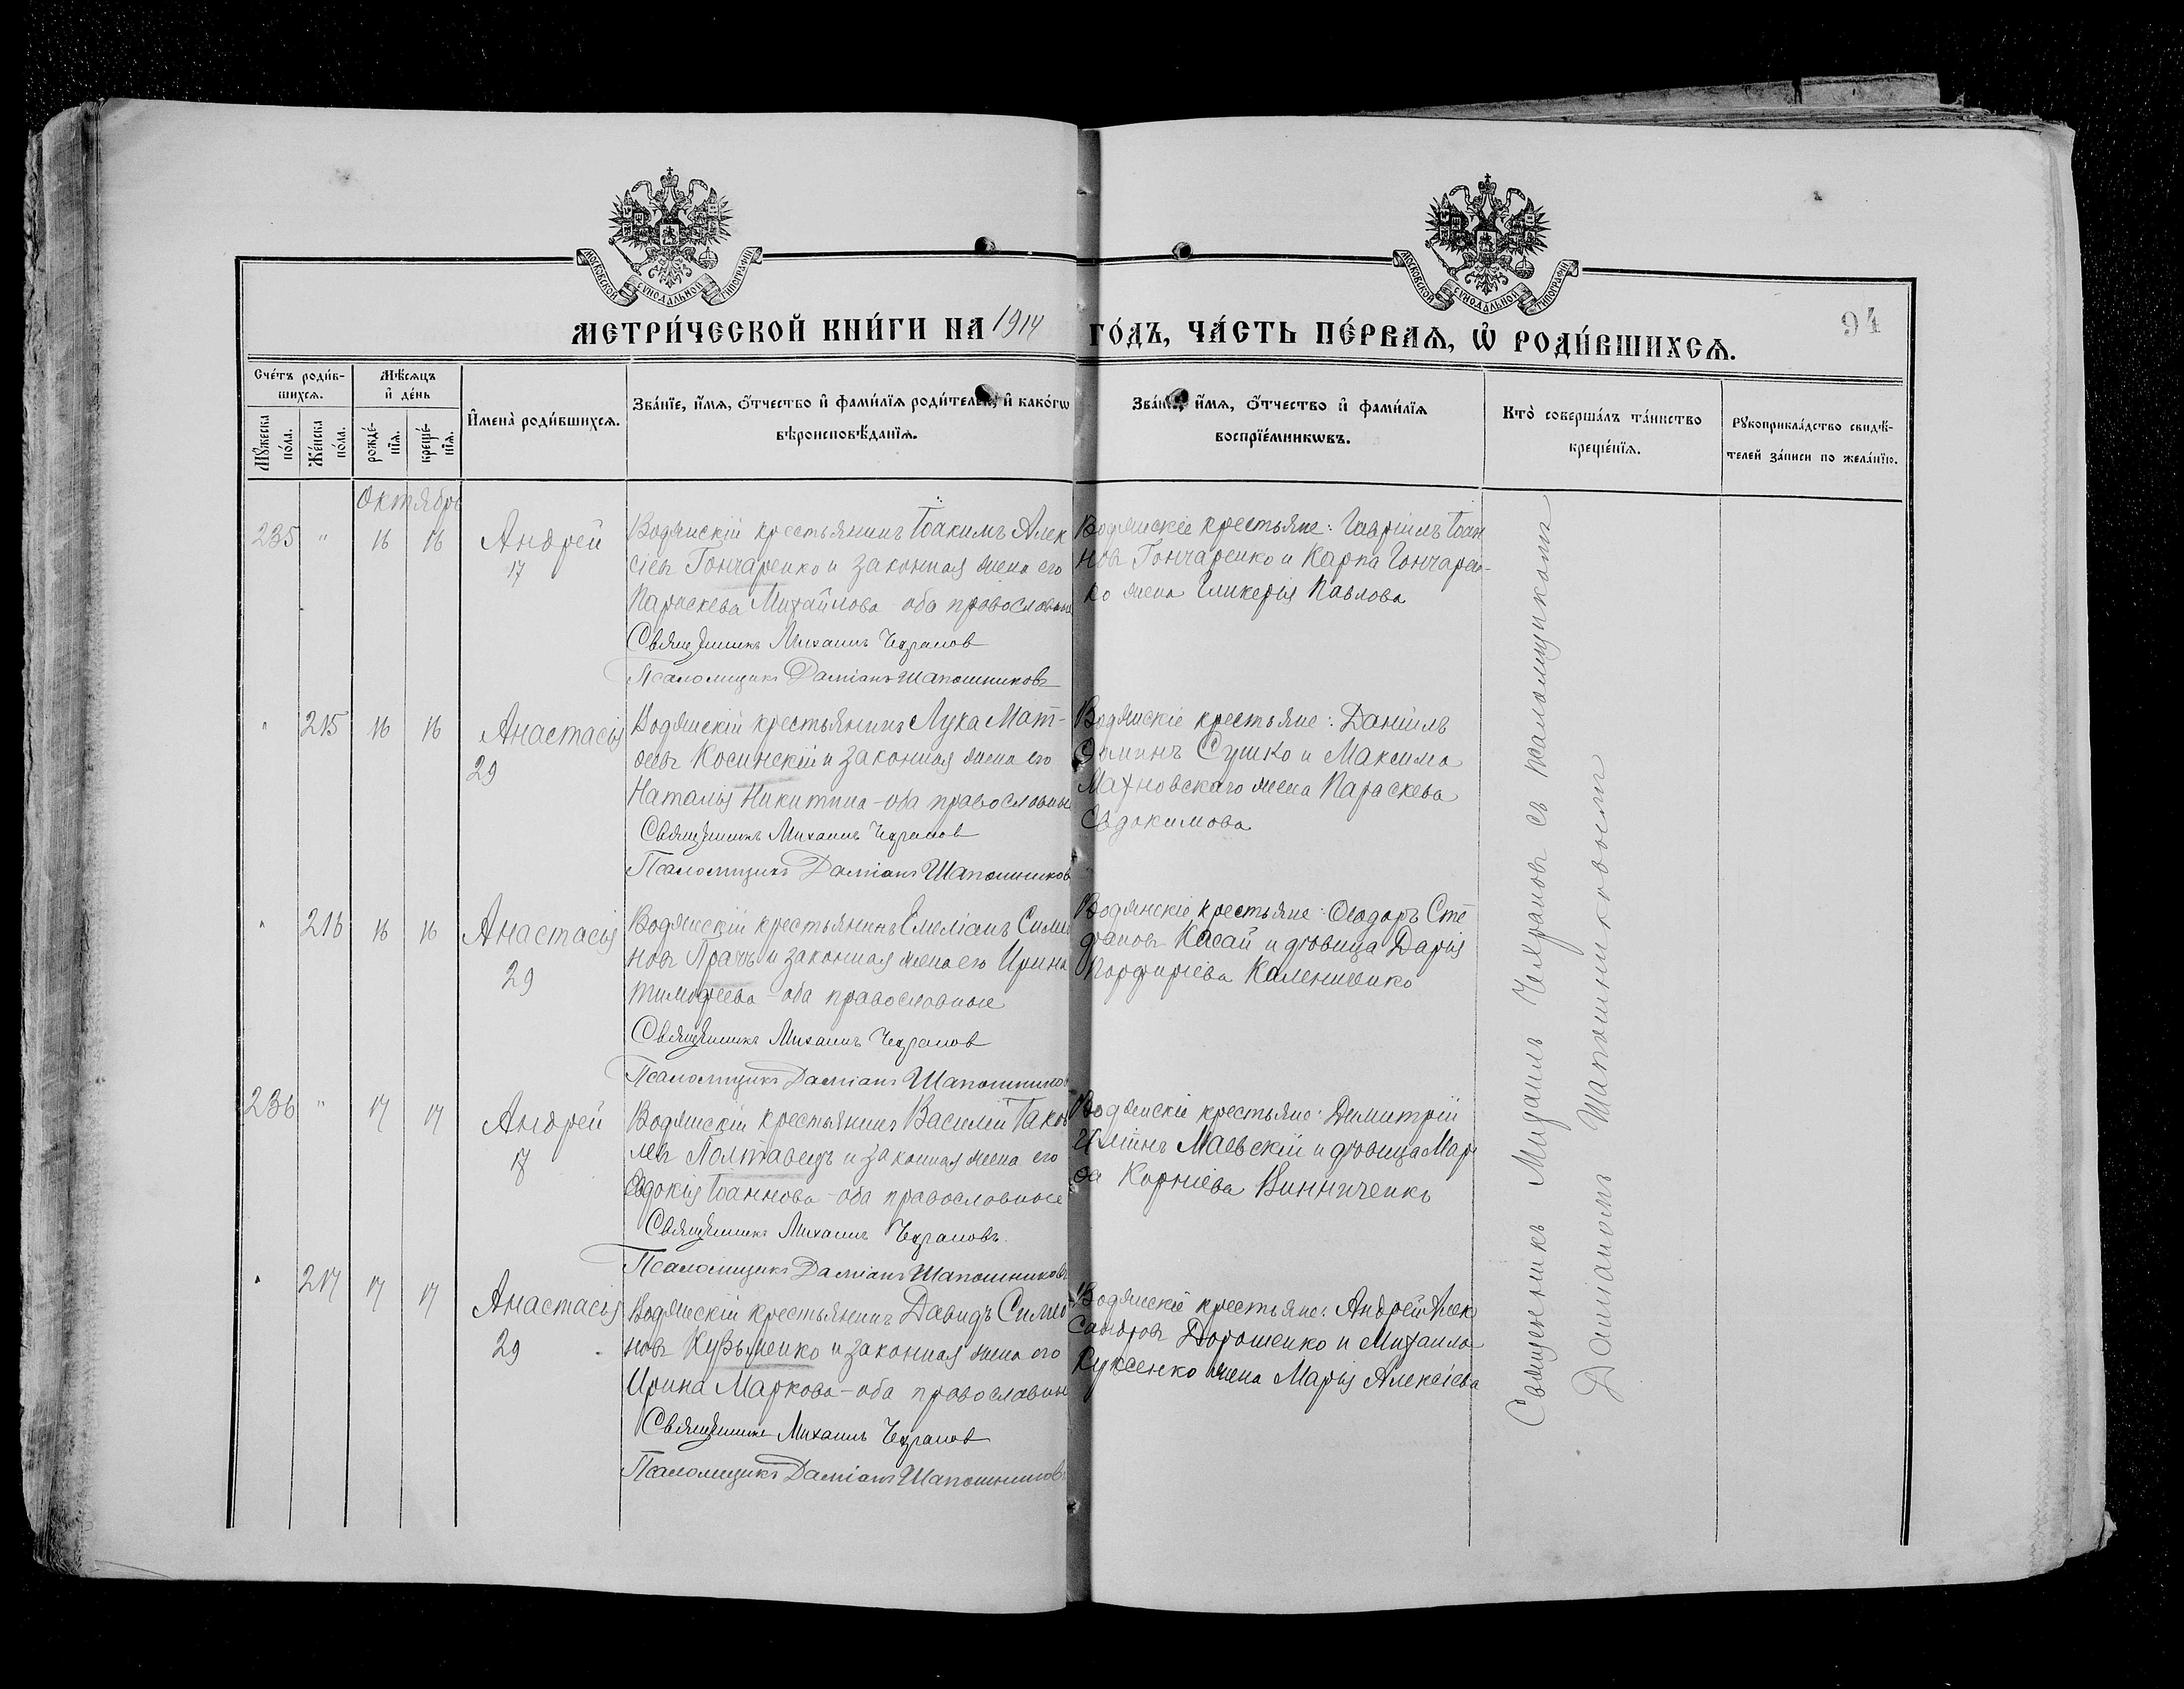 МОСКОВСКОЙ СѴНОДАЛЬНОЙ ТИПОГРАФІИ
МОСКОВСКОЙ СѴНОДАЛЬНОЙ ТИПОГРАФІИ
МЕТРИ́ЧЕСКОЙ КНИ́ГИ НА 1914 ГО́ДЪ, ЧА́СТЬ ПЕ́РВАѦ, Ѡ҆ РОДИ́ВШИХСѦ.
94
Сче́тъ роди́в-
шихсѧ.
Мѣ́сѧцъ
и҆ де́нь
Мꙋ́жеска по́ла.
Же́нска по́ла.
рожде́-нїѧ.
креще́-нїѧ.
И҆мена̀ роди́вшихсѧ.
Зва́нїе, и҆́мѧ, о҆́тчество и҆ фами́лїѧ роди́телей, и҆ како́гѡ
вѣроисповѣ́данїѧ.
Зва́нїе, и҆́мѧ, о҆́тчество и҆ фами́лїѧ
воспрїе́мникѡвъ.
Кто̀ соверша́лъ та́инство
креще́нїѧ.
Рꙋкоприкла́дство свидѣ́-
телей за́писи по жела́нїю.
Октябрь
235 " 16 16 Андрей
17
Водянскій крестьянинъ Іоакимъ Алек
сіевъ Гончаренко и законная жена его
Параскева Михайлова - оба православные
Священникъ Михаилъ Чехрановъ
Псаломщикъ Даміанъ Шапошниковъ
Водянскіе крестьяне: Гавріилъ Іоан
новъ Гончаренко и Карпа Гончарен-
ко жена Гликерія Павлова
" 215 16 16 Анастасія
29
Водянскій крестьянинъ Лука Мат-
ѳеевъ Косинскій и законная жена его
Наталія Никитина - оба православные
Священникъ Михаилъ Чехрановъ
Псаломщикъ Даміанъ Шапошниковъ
Водянскіе крестьяне: Даніилъ
Сушко и Максима
Махновскаго жена Параскева
Евдокимова
" 216 16 16 Анастасія
29
Водянскій крестьянинъ Емеліанъ Симео
новъ Прачъ и законная жена его Ирина
Тимофеева - оба православные
Священникъ Михаилъ Чехрановъ
Псаломщикъ Даміанъ Шапошниковъ
Водянскіе крестьяне: Ѳеодоръ Сте
фановъ Касай и дѣвица Дарія
Порфиріева Калениченко
236 " 17 17 Андрей
17
Водянскій крестьянинъ Василій Іаков
левъ Полтавецъ и законная жена его
Евдокія Іоаннова - оба православные
Священникъ Михаилъ Чехрановъ.
Псаломщикъ Даміанъ Шапошниковъ
Водянскіе крестьяне: Димитрій
Маевскій и дѣвица Мар
ѳа Корніева Винниченко
" 217 17 17 Анастасія
29
Водянскій крестьянинъ Давидъ Симео
новъ Кузьменко и законная жена его
Ирина Маркова - оба православные
Священникъ Михаилъ Чехрановъ
Псаломщикъ Даміанъ Шапошниковъ
Водянскіе крестьяне: Андрей Алек
сандровъ Дорошенко и Михаила
Куксенко жена Марія Алексіева
Священникъ Михаилъ Чехрановъ съ псаломщикомъ
Даміаномъ Шапошниковымъ